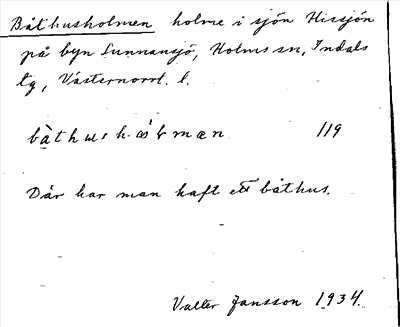 Båthusholmen holme i sjön Hissjön
på byn Sunnansjö, Holms sn, Indals
tg, Västernorrl. l.
119
Där har man haft ett båthus.
Valter Jansson 1934.